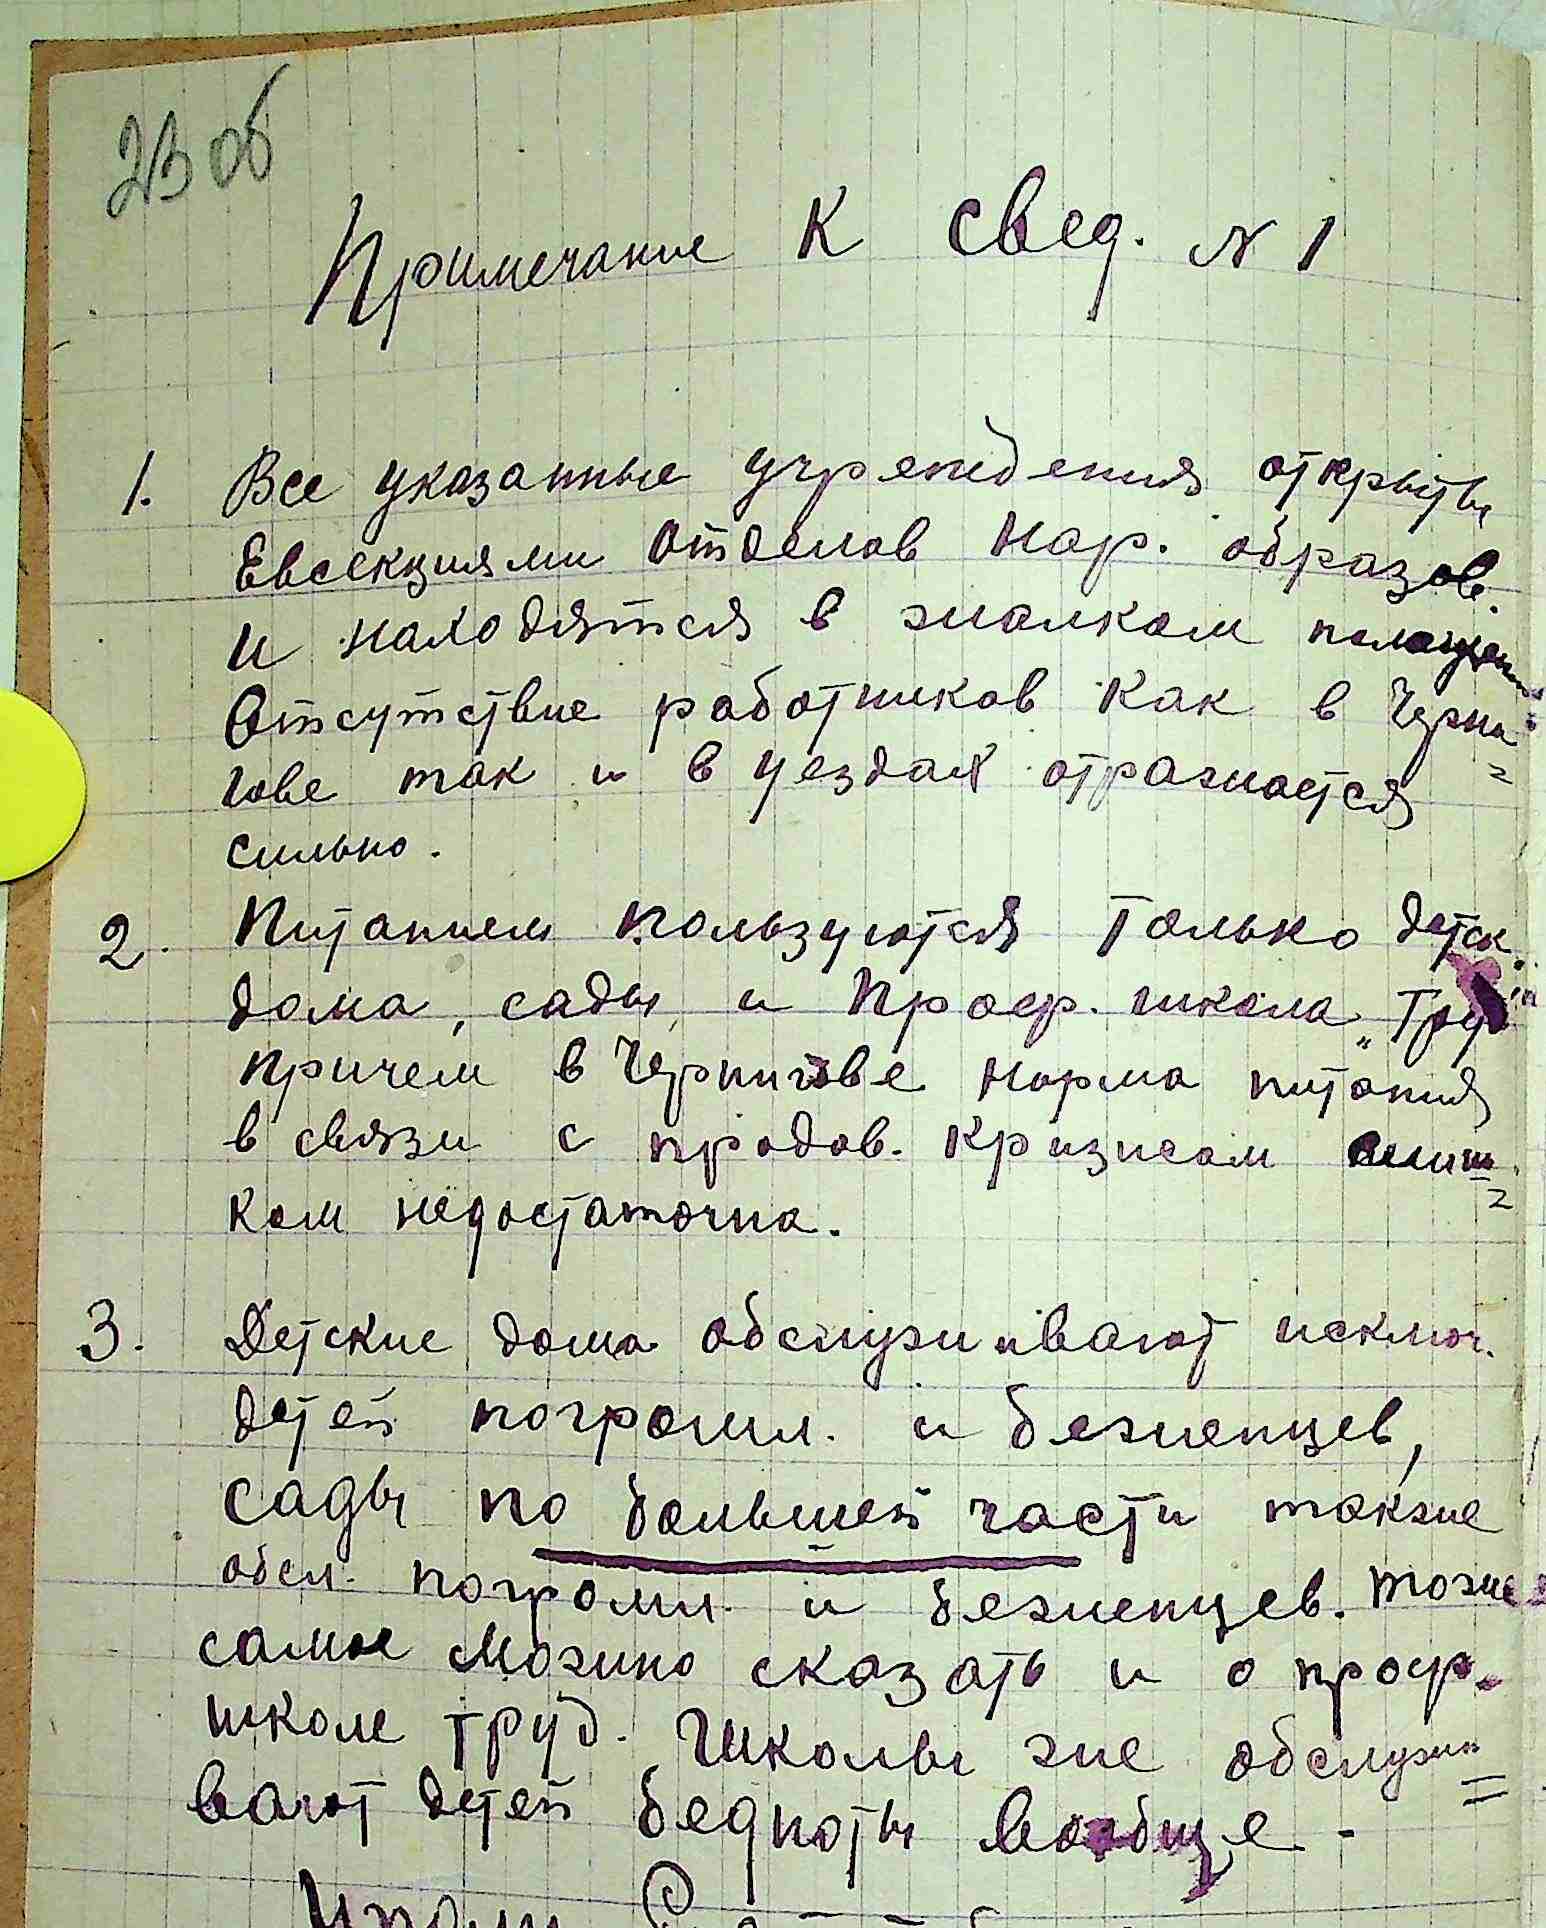 23 об
Примечание к свед. № 1
1. Все указанные учреждения открыты
Евсекциями отделов Нар. образов.
и находятся в жалком положен
Отсутствие работников как в Черни=
гове так и в уездах отражается
сильно.
2. Питанием пользуются только детск.
дома, сады, и Проф. школа „Труд"
причем в Чернигове норма питания
в связи с продов. кризисом слиш=
ком недостаточна.
3. Детские дома обслуживают исключ.
детей погромл. и беженцев,
сады по большей части также
обсл. погромл. и беженцев. тоже
самое можно сказать и о проф.
школе труд. Школы же обслужи=
вают детей бедноты вообще.